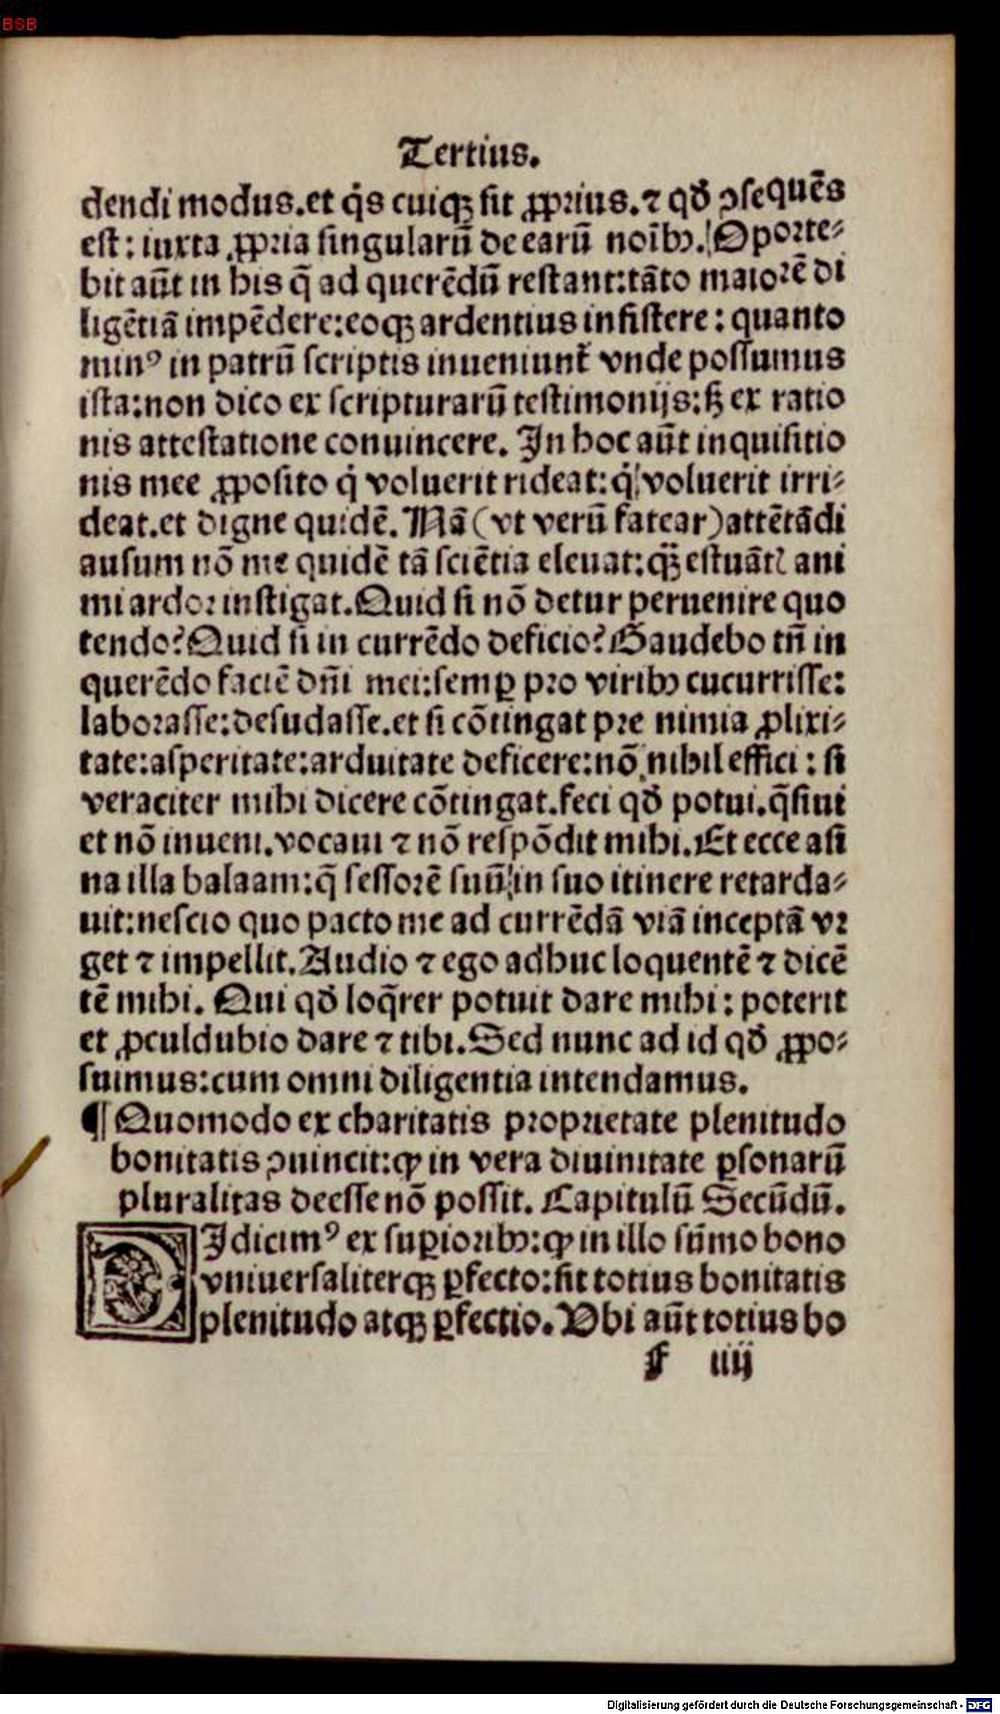 BSB
Tertius.
dendi modus.et q̇s cuiqꝫ sit ꝓprius.⁊ qđ ꝯsequēs
est: iuxta ꝓpria singularū de earū noībꝰ.Oporte-
bit aūt in his q̄ ad querēdū restant:tāto maiorē di
ligētiā impēdere:eoqꝫ ardentius insistere: quanto
minꝰ in patrū scriptis inueniunt᷑ vnde possumus
ista:non dico ex scripturarū testimonijs:sꝫ ex ratio
nis attestatione conuincere. In hoc aūt inquisitio
nis mee ꝓposito q̇ voluerit rideat: q̇ voluerit irri-
deat.et digne quidē. Nā (vt verū fatear) attētādi
ausum nō me quidē tā sciētia eleuat:qꝫ̄ estuātꝭ ani
mi ardor instigat.Quid si nō detur peruenire quo
tendo? Quid si in currēdo deficio? Gaudebo tn̄ in
querēdo faciē dn̄i mei:semꝑ pro viribꝰ cucurrisse:
laborasse:desudasse.et si cōtingat pre nimia ꝓlixi-
tate:asperitate:arduitate deficere:nō nihil effici : si
veraciter mihi dicere cōtingat.feci qđ potui.q̄siui
et nō inueni.vocaui ⁊ nō respōdit mihi.Et ecce asi
na illa balaam:q̄ sessorē suū in suo itinere retarda-
uit:nescio quo pacto me ad currēdā viā inceptā vr
get ⁊ impellit.Audio ⁊ ego adhuc loquentē ⁊ dicē
tē mihi. Qui qđ loq̄rer potuit dare mihi: poterit
et ꝓculdubio dare ⁊ tibi.Sed nunc ad id qđ ꝓpo-
suimus:cum omni diligentia intendamus.
¶ Quomodo ex charitatis proprietate plenitudo
bonitatis ꝯuincit:ꝙ in vera diuinitate ꝑsonarū
pluralitas deesse nō possit. Capitulū Secūdū.
DIdicimꝰ ex suꝑioribꝰ:ꝙ in illo sūmo bono
vniuersaliterqꝫ ꝑfecto:sit totius bonitatis
plenitudo atqꝫ ꝑfectio. Ubi aūt totius bo
f iiij
Digitalisierung gefördert durch die Deutsche Forschungsgemeinschaft - DFG